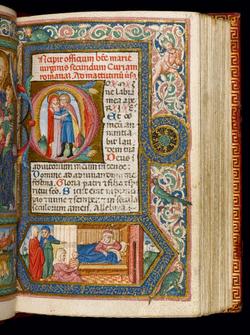 Incipit officium bēe marie
virginis secundum Curiam
romanam. Ad matutinū v̄s.
Domi
ne labia
mea ape
ries. R. Et
os meū an
nuntia
bit lau
dem tuā
Deus
adiutorium meum intende.
Domine ad adiuvandum me
festina. Gloria patri et filio et
spiritui sancto. Sicut erat in principi
o et nunc et semper et in secula
seculorum amen. Alleluia.